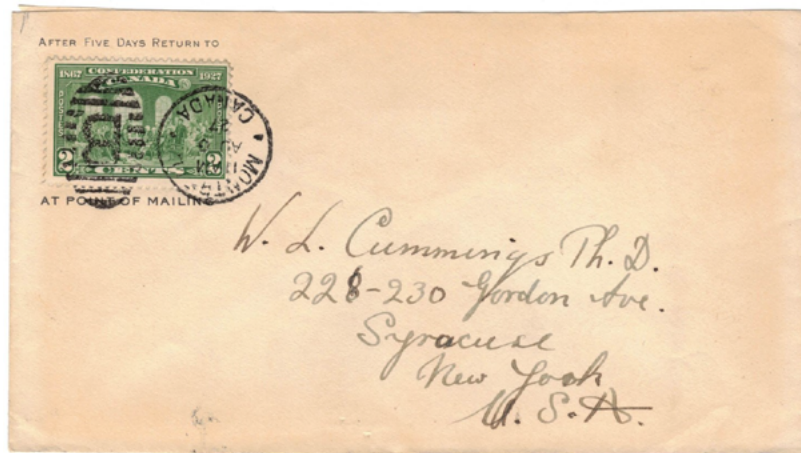 AFTER FIVE DAYS RETURN TO
1867 CONFEDERATION 1927
CANADA
POSTES POSTAGE
2 CENTS 2
MONTR
CANADA
AT POINT OF MAILING
W. L. Cummings Ph. D.
228-230 Gordon Ave.
Syracuse
New York
U. S. A.